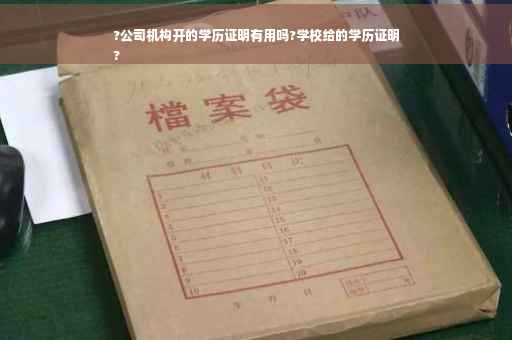 ?公司机构开的学历证明有用吗?学校给的学历证明
?
檔案袋
材料目次
1
2
3
4
5
6
7
8
9
10
11
12
13
14
15
16
17
18
19
20
年 月 日